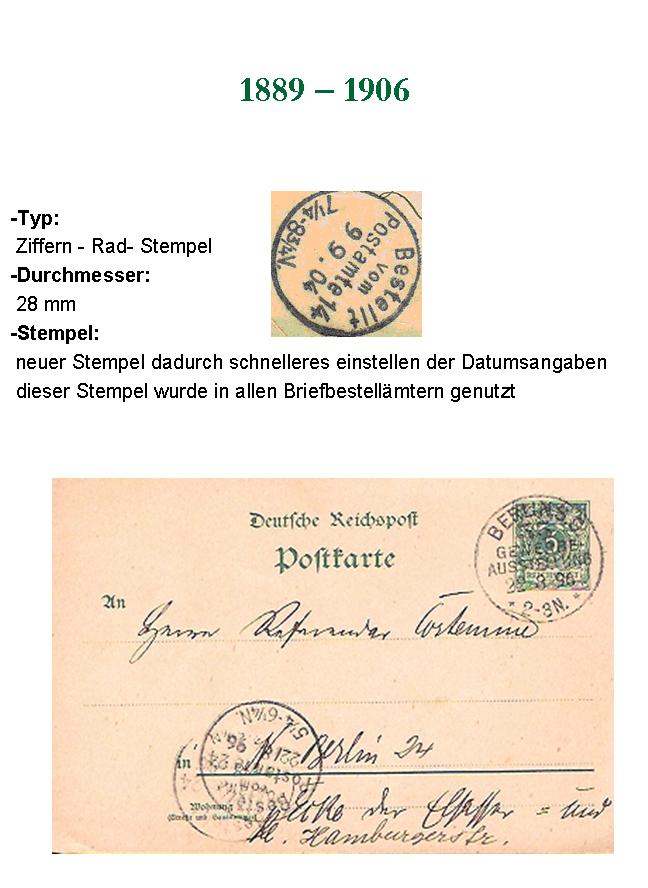 1889 – 1906
-Typ:
Ziffern - Rad- Stempel
-Durchmesser:
28 mm
-Stempel:
neuer Stempel dadurch schnelleres einstellen der Datumsangaben
dieser Stempel wurde in allen Briefbestellämtern genutzt
Bestellt
vom
Postamte 14
9 9. 04
7¼-8¾V.
Deutsche Reichspost
Postkarte
BERLIN S.O.
GEWERBE-
AUSSTELLUNG
22 8 96
* 2-3N. *
An
Herrn Referendar
in N Berlin 24
Wohnung
(Straße und Hausnummer)
Ecke der Elsasser = und
kl. Hamburgerstr.
Bestellt
vom
Postamte 24
22/8 96
5¼-6¼N.